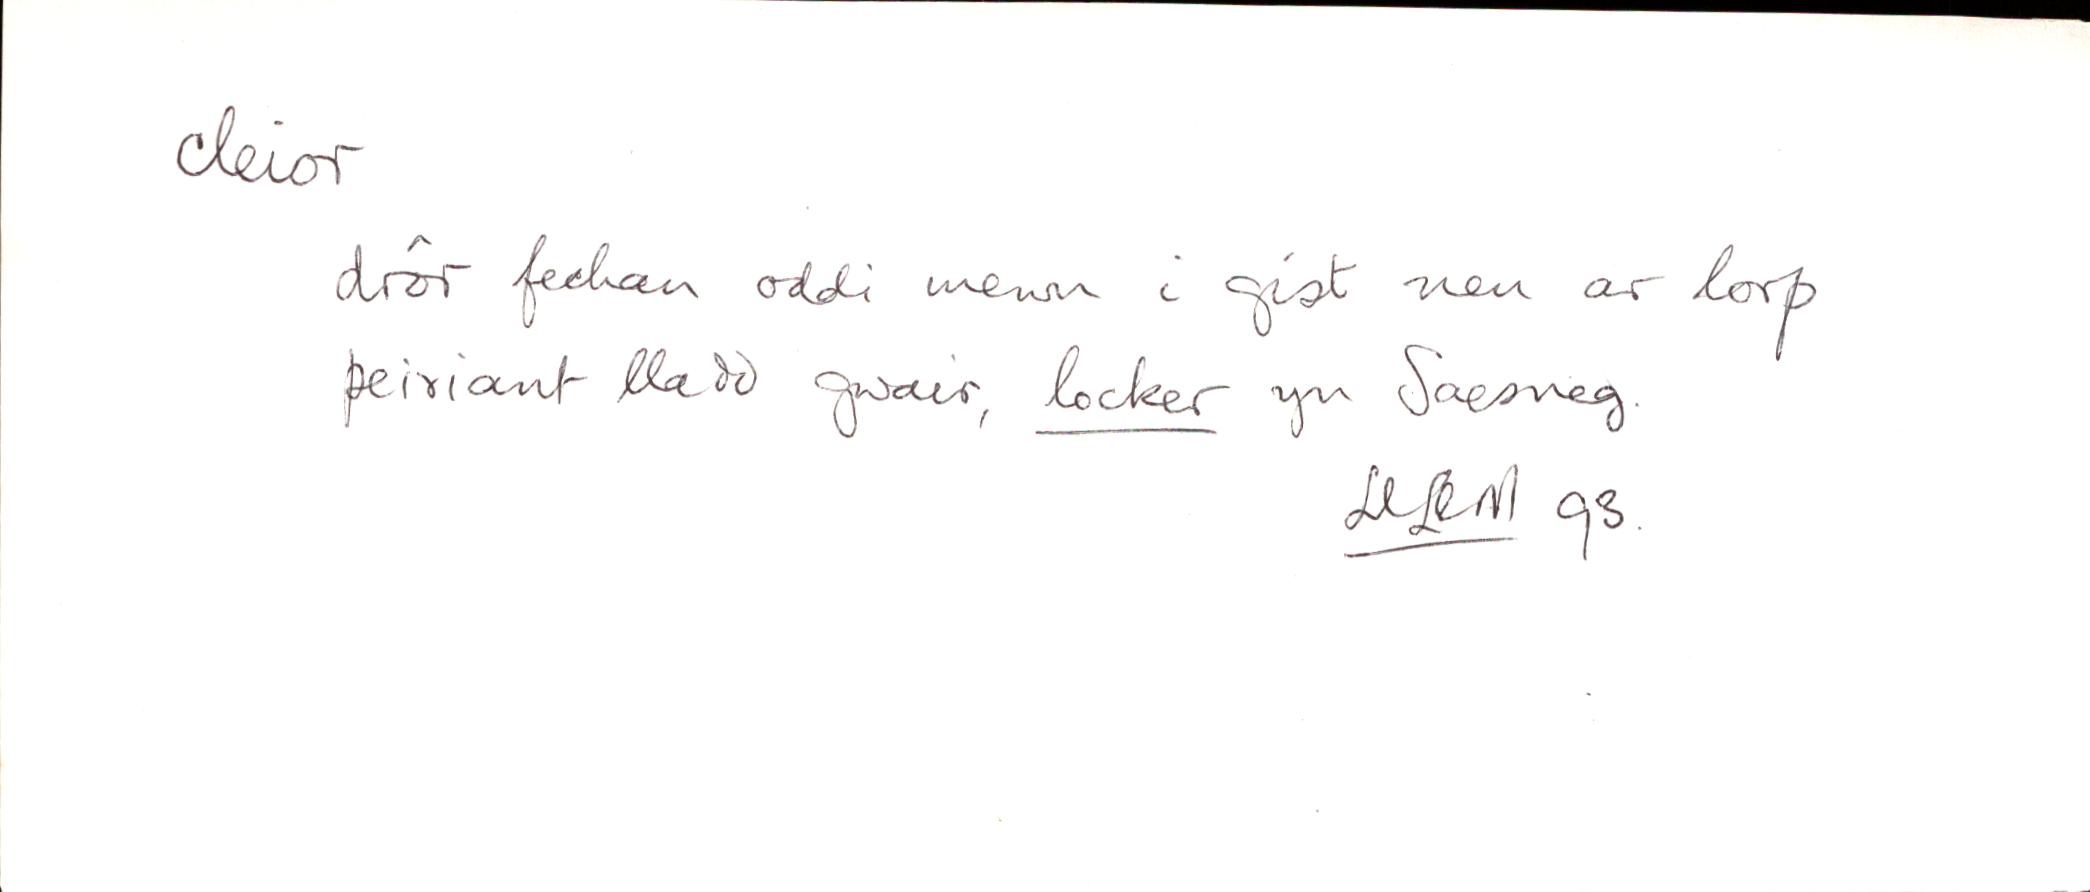 cleior
drôr fechan oddi mewn i gist neu ar lorp
peiriant lladd gwair, locker yn Saesneg.
LlLlM 93.